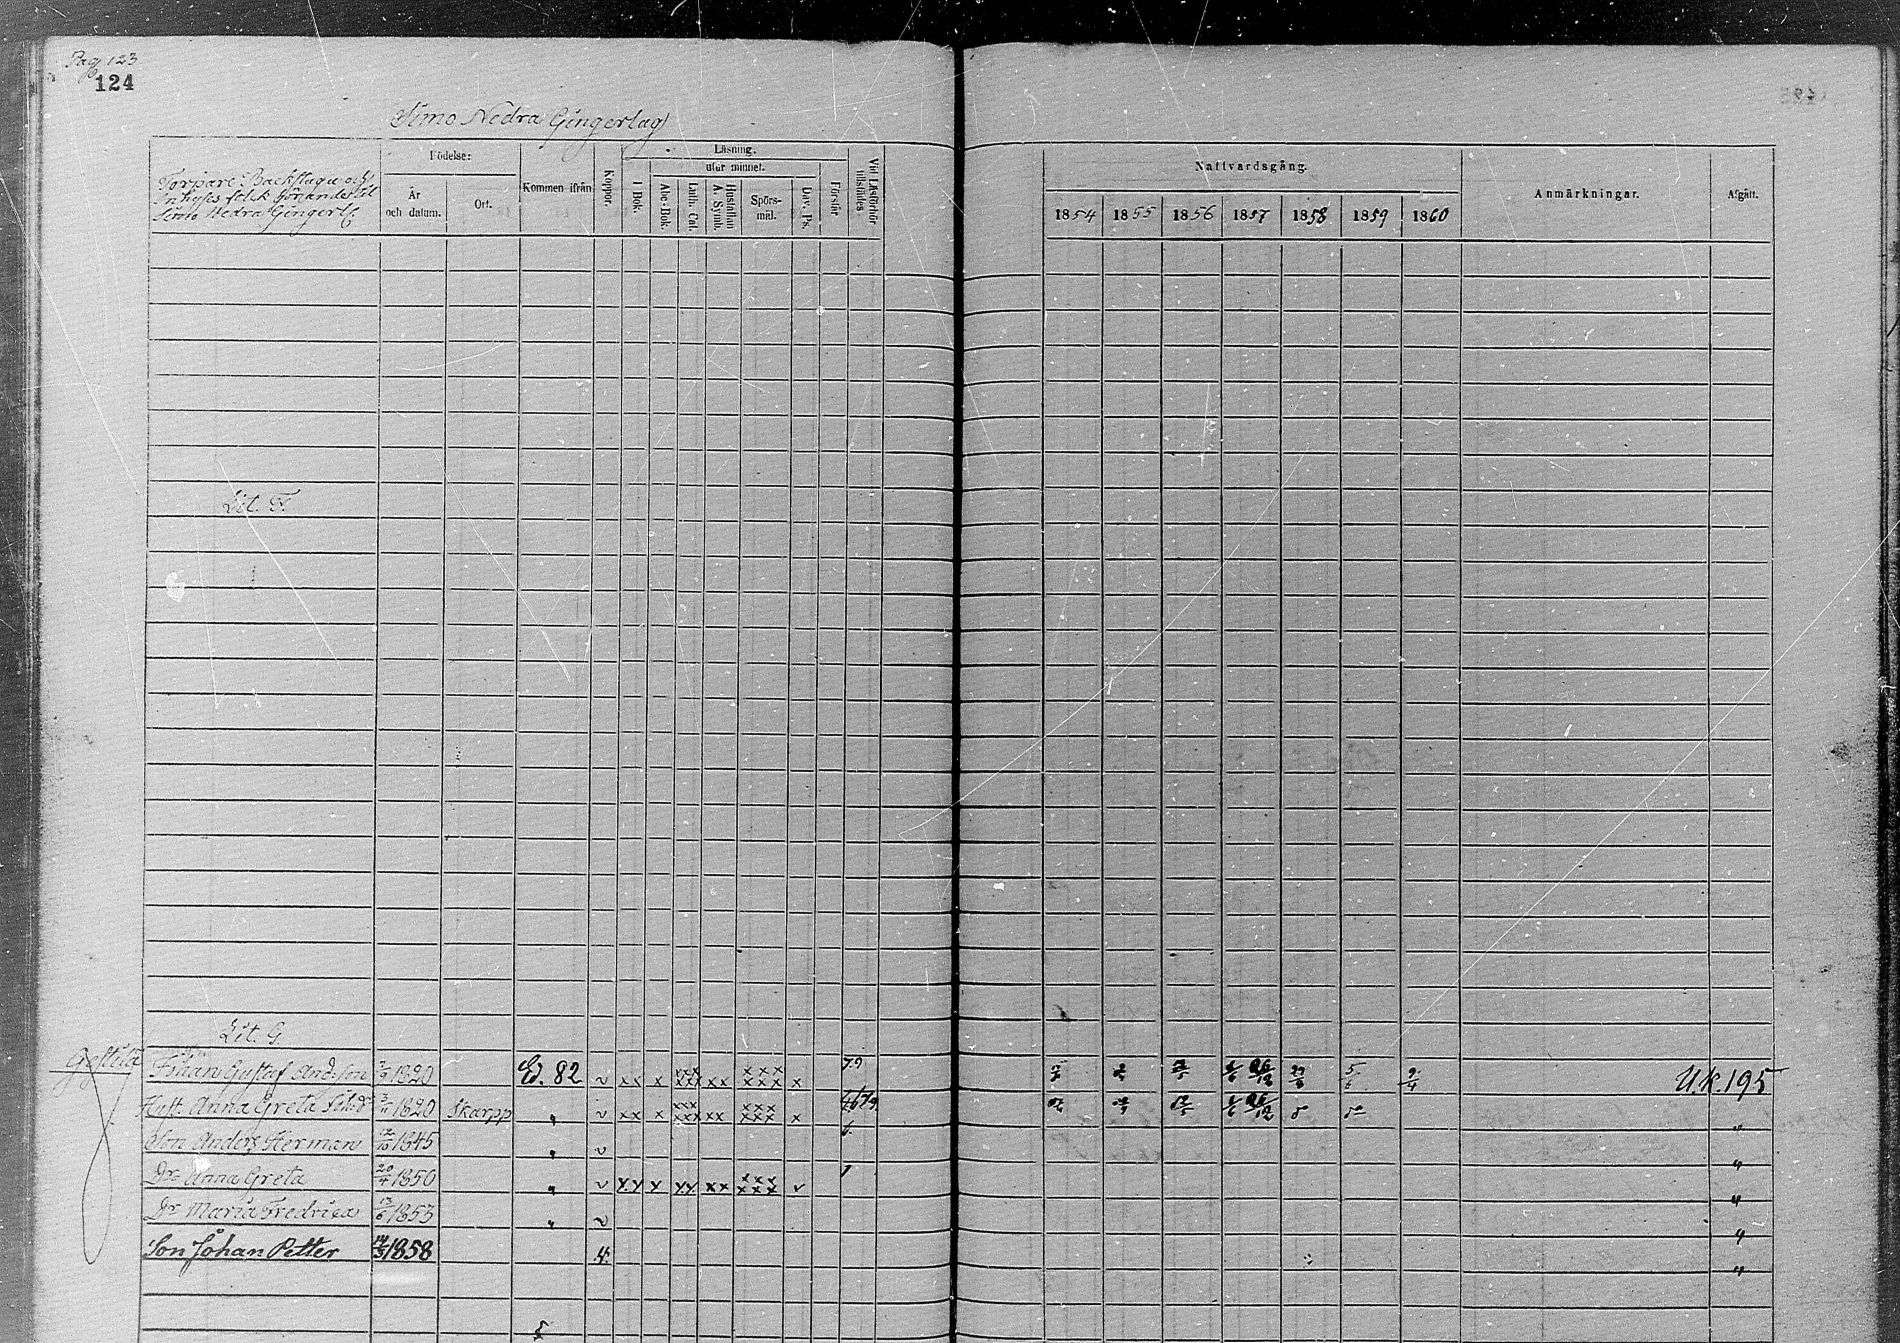 Pag 123
124
Simo Nedra Gingerlag
Torpare Backstugu och
Inhyses folk hörande til
Simo Nedra Gingerl.
Födelse:
År
och datum.
Ort.
Kommen ifrån
Koppor.
Läsning.
utur minnet.
I Bok.
Abc-Bok.
Luth. Cat.
Hustaflan
A. Symb.
Spörs-
mål.
Dav. Ps.
Förstår
Vid Läsförhör
tillstädes
Nattvardsgång.
1854 1855 1856 1857 1858 1859 1860
Anmärkningar.
Afgått.
Lit. F.
Lit. G.
Johan Gustaf And:son 1820 Ed. 82 v xx x xxx xxx xx xxx xxx x 7.9 U.K. 195
Hust. Anna Greta 1820 Skarpp " v xx x xxx xxx xx xxx xxx x "
Son Anders Herman 12/10 1845 " v "
Dr Anna Greta 20/4 1850 " v xx x xx xx xxx xxx v 1 "
Dr Maria Fredrica 13/6 1853 " v "
Son Johan Petter 1858 v. "